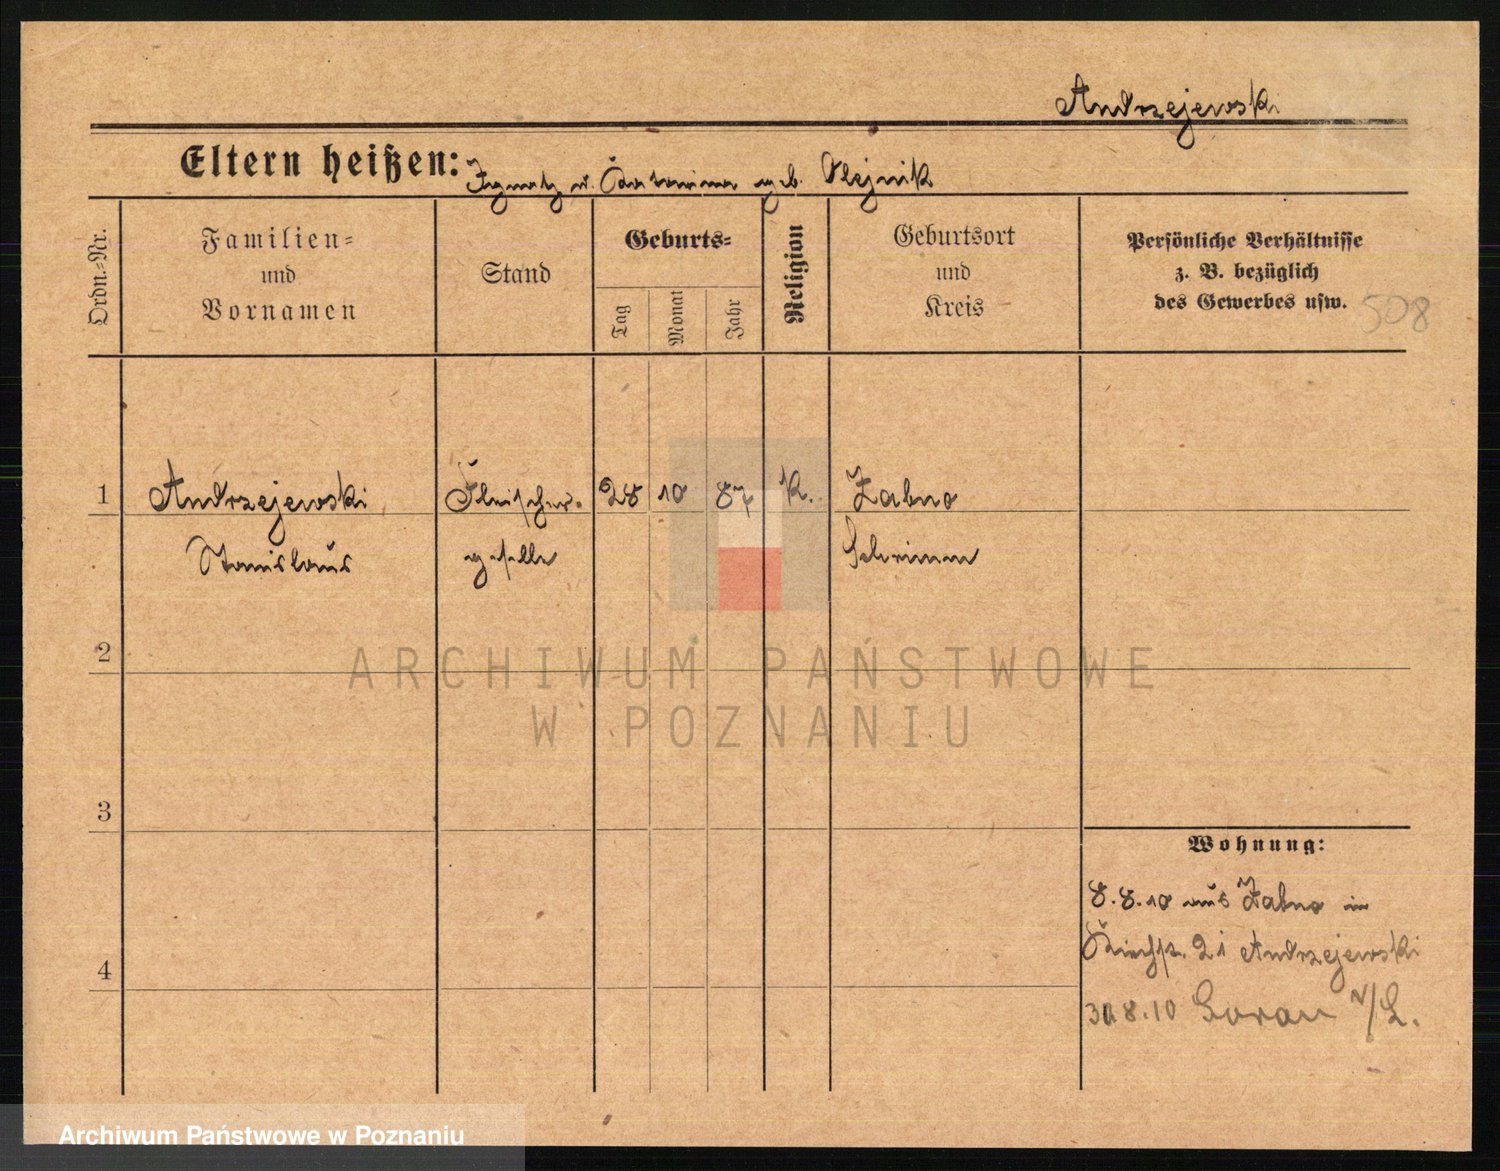 Andrzejewski
Eltern heißen: Ignatz u. Katarina geb. Olejnik
Ordn.-Nr.
Familien-
und
Vornamen
Stand
Geburts-
Tag
Monat
Jahr
Religion
Geburtsort
und
Kreis
Persönliche Verhältnisse
z. B. bezüglich
des Gewerbes usw.
508
1 Andrzejewski Fleischer- 28 10 87 k. Zabno
Stanislaus geselle Schrimm
2
3
4
Wohnung:
8.8.10 aus Zabno in
Kirchstr. 21 Andrzejewski
30.8.10 Sorau N/L.
ARCHIWUM PAŃSTWOWE
W POZNANIU
Archiwum Państwowe w Poznaniu